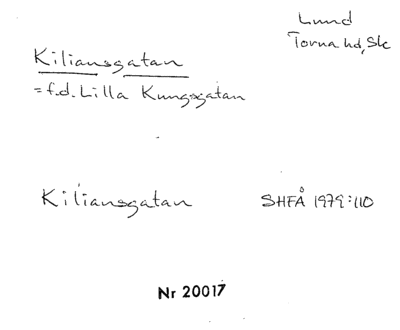 Lund
Torna hd, Sk
Kiliansgatan
= f.d. Lilla Kungsgatan
Kiliansgatan SHFÅ 1979:110
Nr 20017